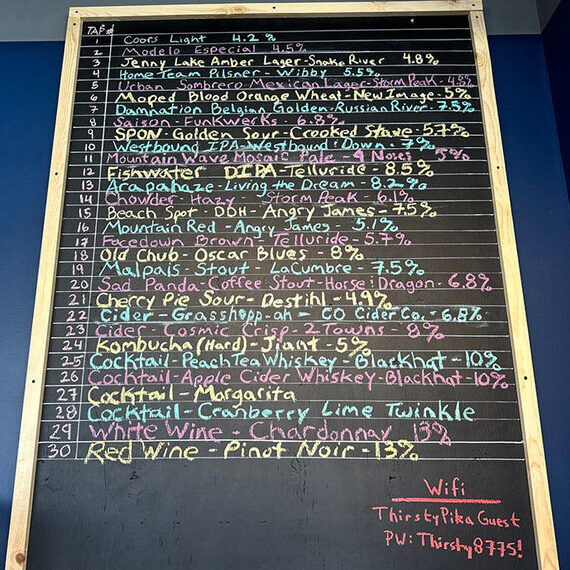 TAP #
1 Coors Light 4.2%
2 Modelo Especial 4.5%
3 Jenny Lake Amber Lager-Snake River 4.8%
4 Home Team Pilsner - Wibby 5.5%
5 Urban Sombrero Mexican Lager-Storm Peak - 4.8%
6 Moped Blood Orange Wheat-New Image-5%
7 Damnation Belgian Golden-Russian River-7.5%
8 Saison - Funkwerks - 6.8%
9 SPON-Golden Sour-Crooked Stave-5.7%
10 Westbound IPA-Westbound & Down - 7%
11 Mountain Wave Mosaic Pale - 4 Noses 5%
12 Fishwater DIPA-Telluride - 8.5%
13 Arapahaze-Living the Dream - 8.2%
14 Chowder-Hazy - Storm Peak - 6.1%
15 Beach Spot - DDH - Angry James - 7.5%
16 Mountain Red - Angry James - 5.1%
17 Facedown Brown - Telluride - 5.7%
18 Old Chub - Oscar Blues - 8%
19 Malpais - Stout - LaCumbre - 7.5%
20 Sad Panda-Coffee Stout-Horse & Dragon - 6.8%
21 Cherry Pie Sour - Destihl - 4.9%
22 Cider - Grasshopp-ah - CO Cider Co. - 6.8%
23 Cider - Cosmic Crisp - 2 Towns - 8%
24 Kombucha (Hard) - Jiant - 5%
25 Cocktail-Peach Tea Whiskey - Blackhat - 10%
26 Cocktail-Apple Cider Whiskey-Blackhat-10%
27 Cocktail - Margarita
28 Cocktail - Cranberry Lime Twinkle
29 White Wine - Chardonnay 13%
30 Red Wine - Pinot Noir - 13%
Wifi
ThirstyPika Guest
PW: Thirsty8775!